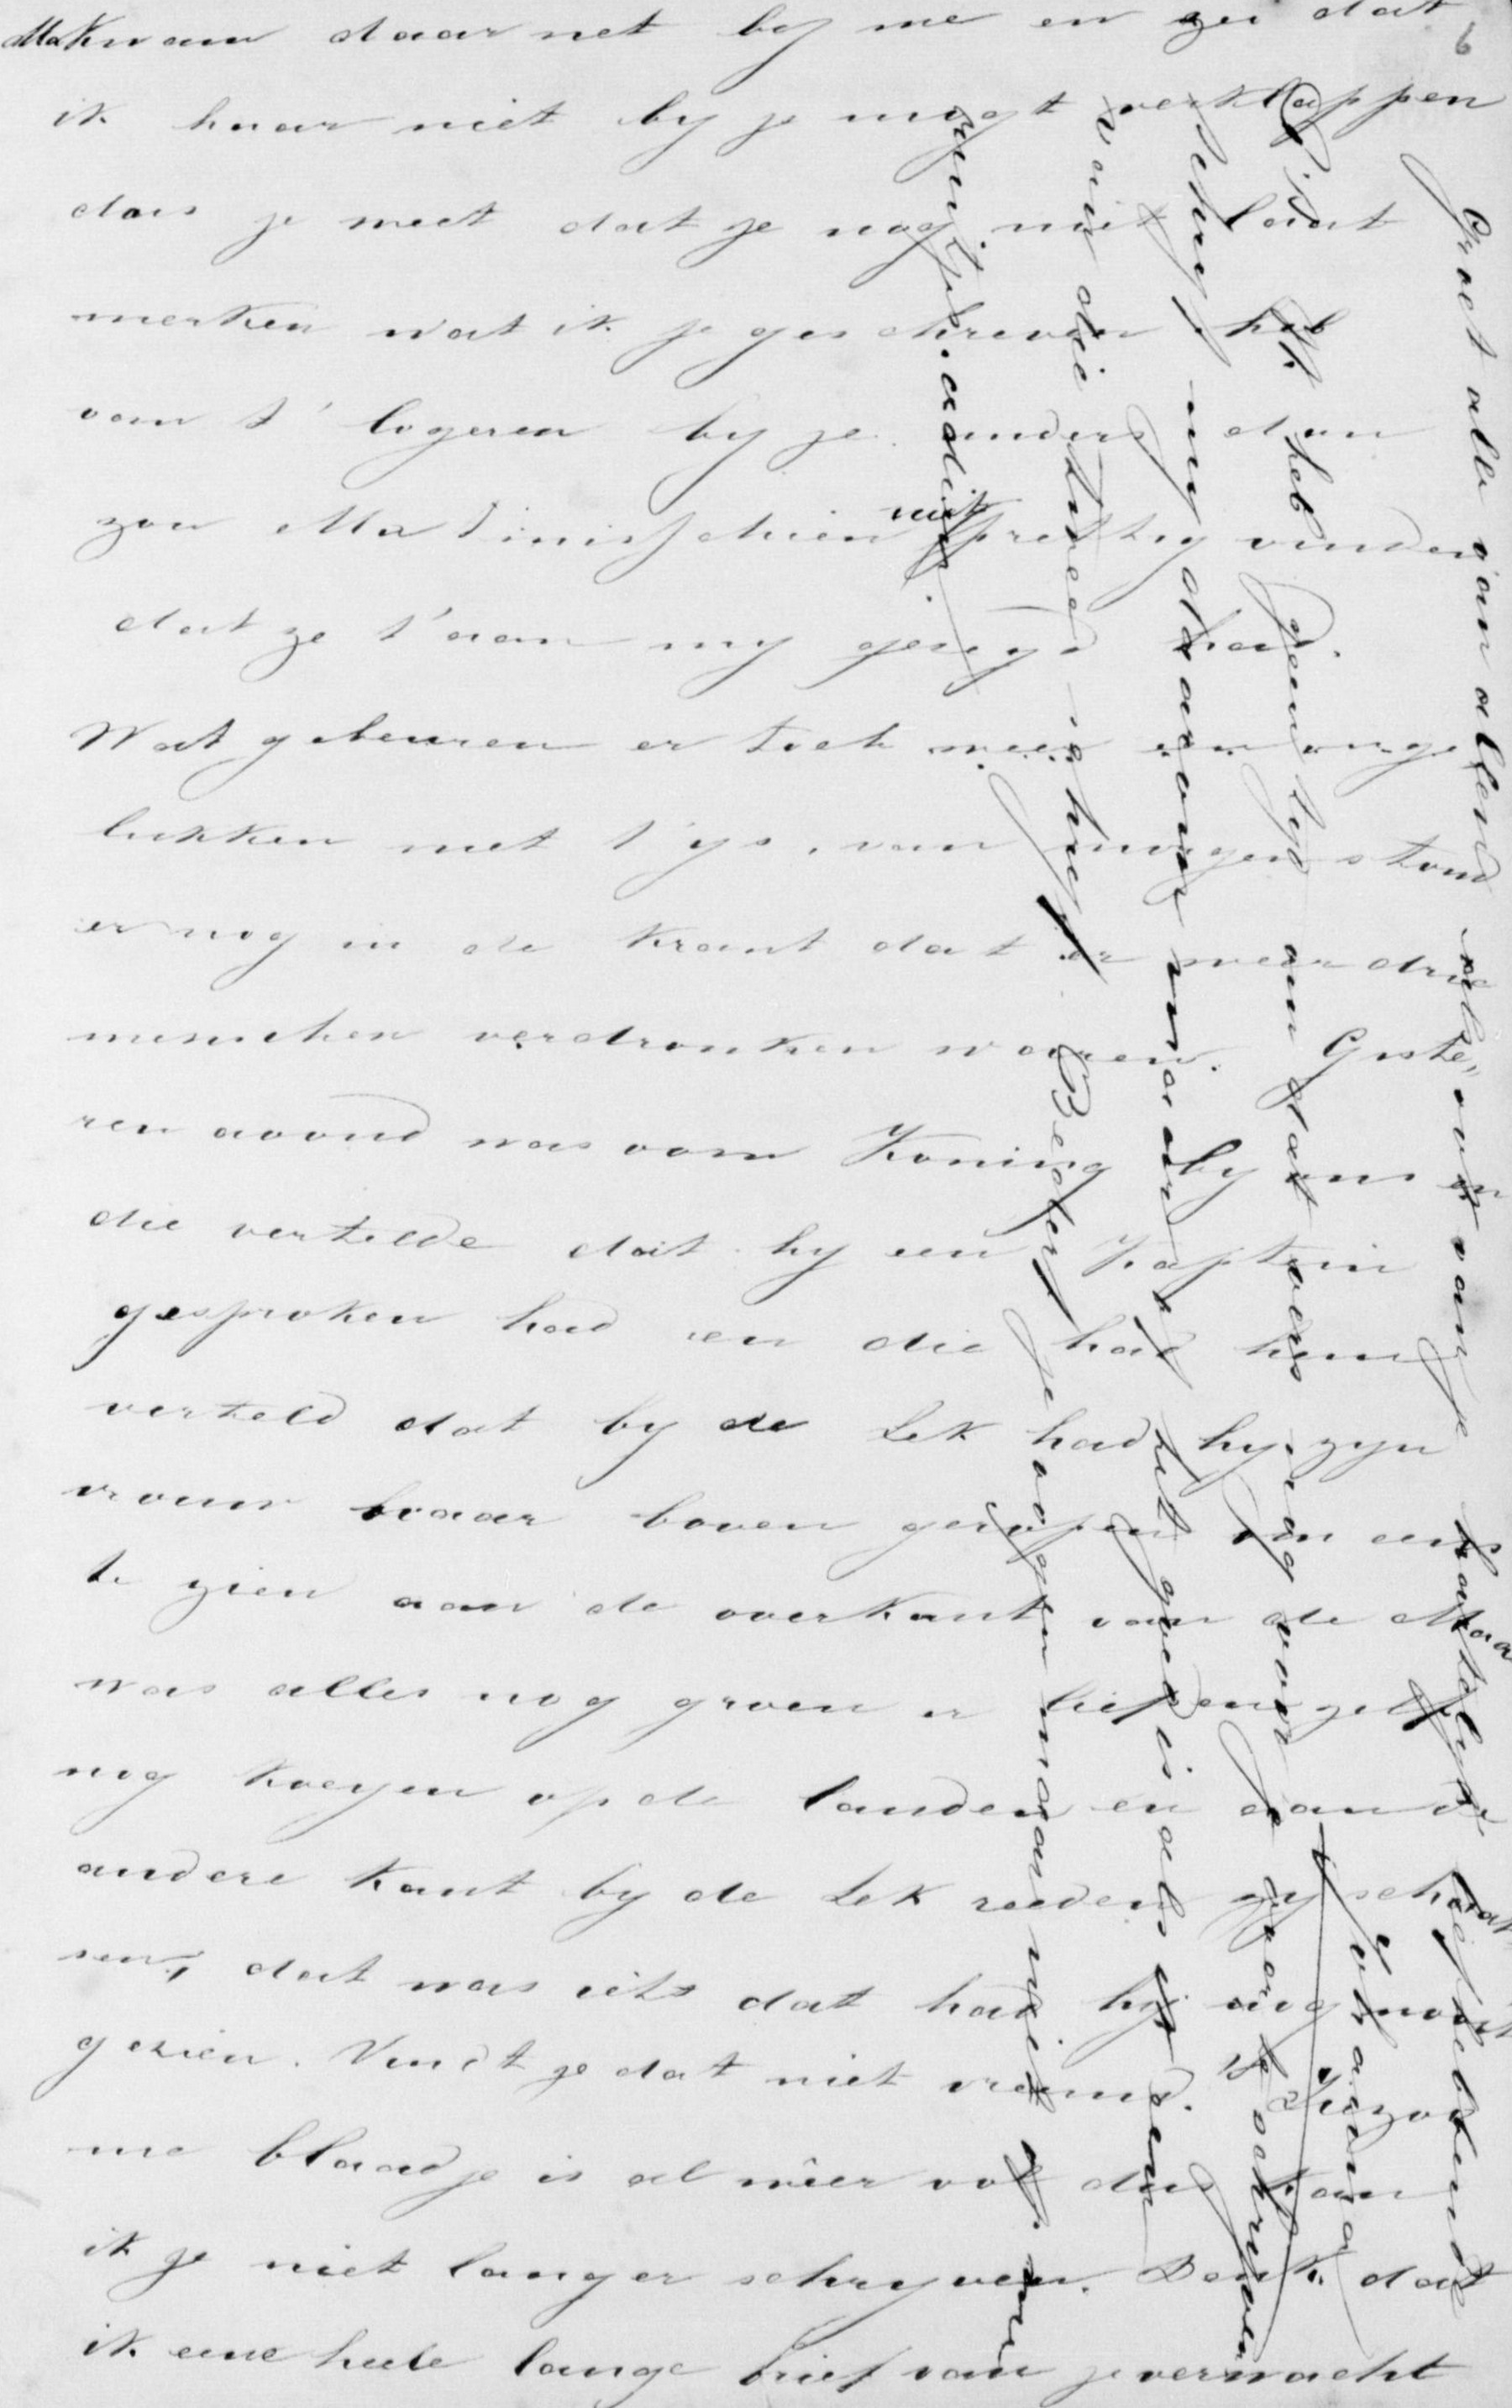 6
Ma kwam daar net by me en zei dat
ik haar niet by je mogt verklappen
dus je weet dat je nog niet laat
merken wat ik je geschreven heb
van t' logeren by je anders dan
zou Ma t misschien niet prettig vinden
dat ze t' aan my gezegd had.
Wat gebeuren er toch weer een onge
lukken met t ys. van morgen stond
er nog in de krant dat er weer drie
menschen verdronken waren. Giste„
ren avond was oom Koning by ons en
die vertelde dat hy een Kaptein
gesproken had en die had hem
verteld dat by de Lek had hy zyn
vrouw boven geroepen om eens
te zien aan de overkant van de Maas
was alles nog groen er liepen zelfs
nog koeyen op de landen en aan de
andere kant by de Lek reeden zy schaat
sen, dat was iets dat had hy nog nooit
gezien. Vindt je dat niet vreemd.
me blaadje is al weer vol dus kan
ik je niet langer schryven. Denk dat
ik eene heele lange brief van je verwacht
Groet alle van allend van je hartelyk liefhebbende
Johanna
P.S. Ik heb geen tyd om dat over nog voor je
schryf my daarom maar of het goed is als ik
van die twee schryf. Bederf je oogen maar niet
adieu.